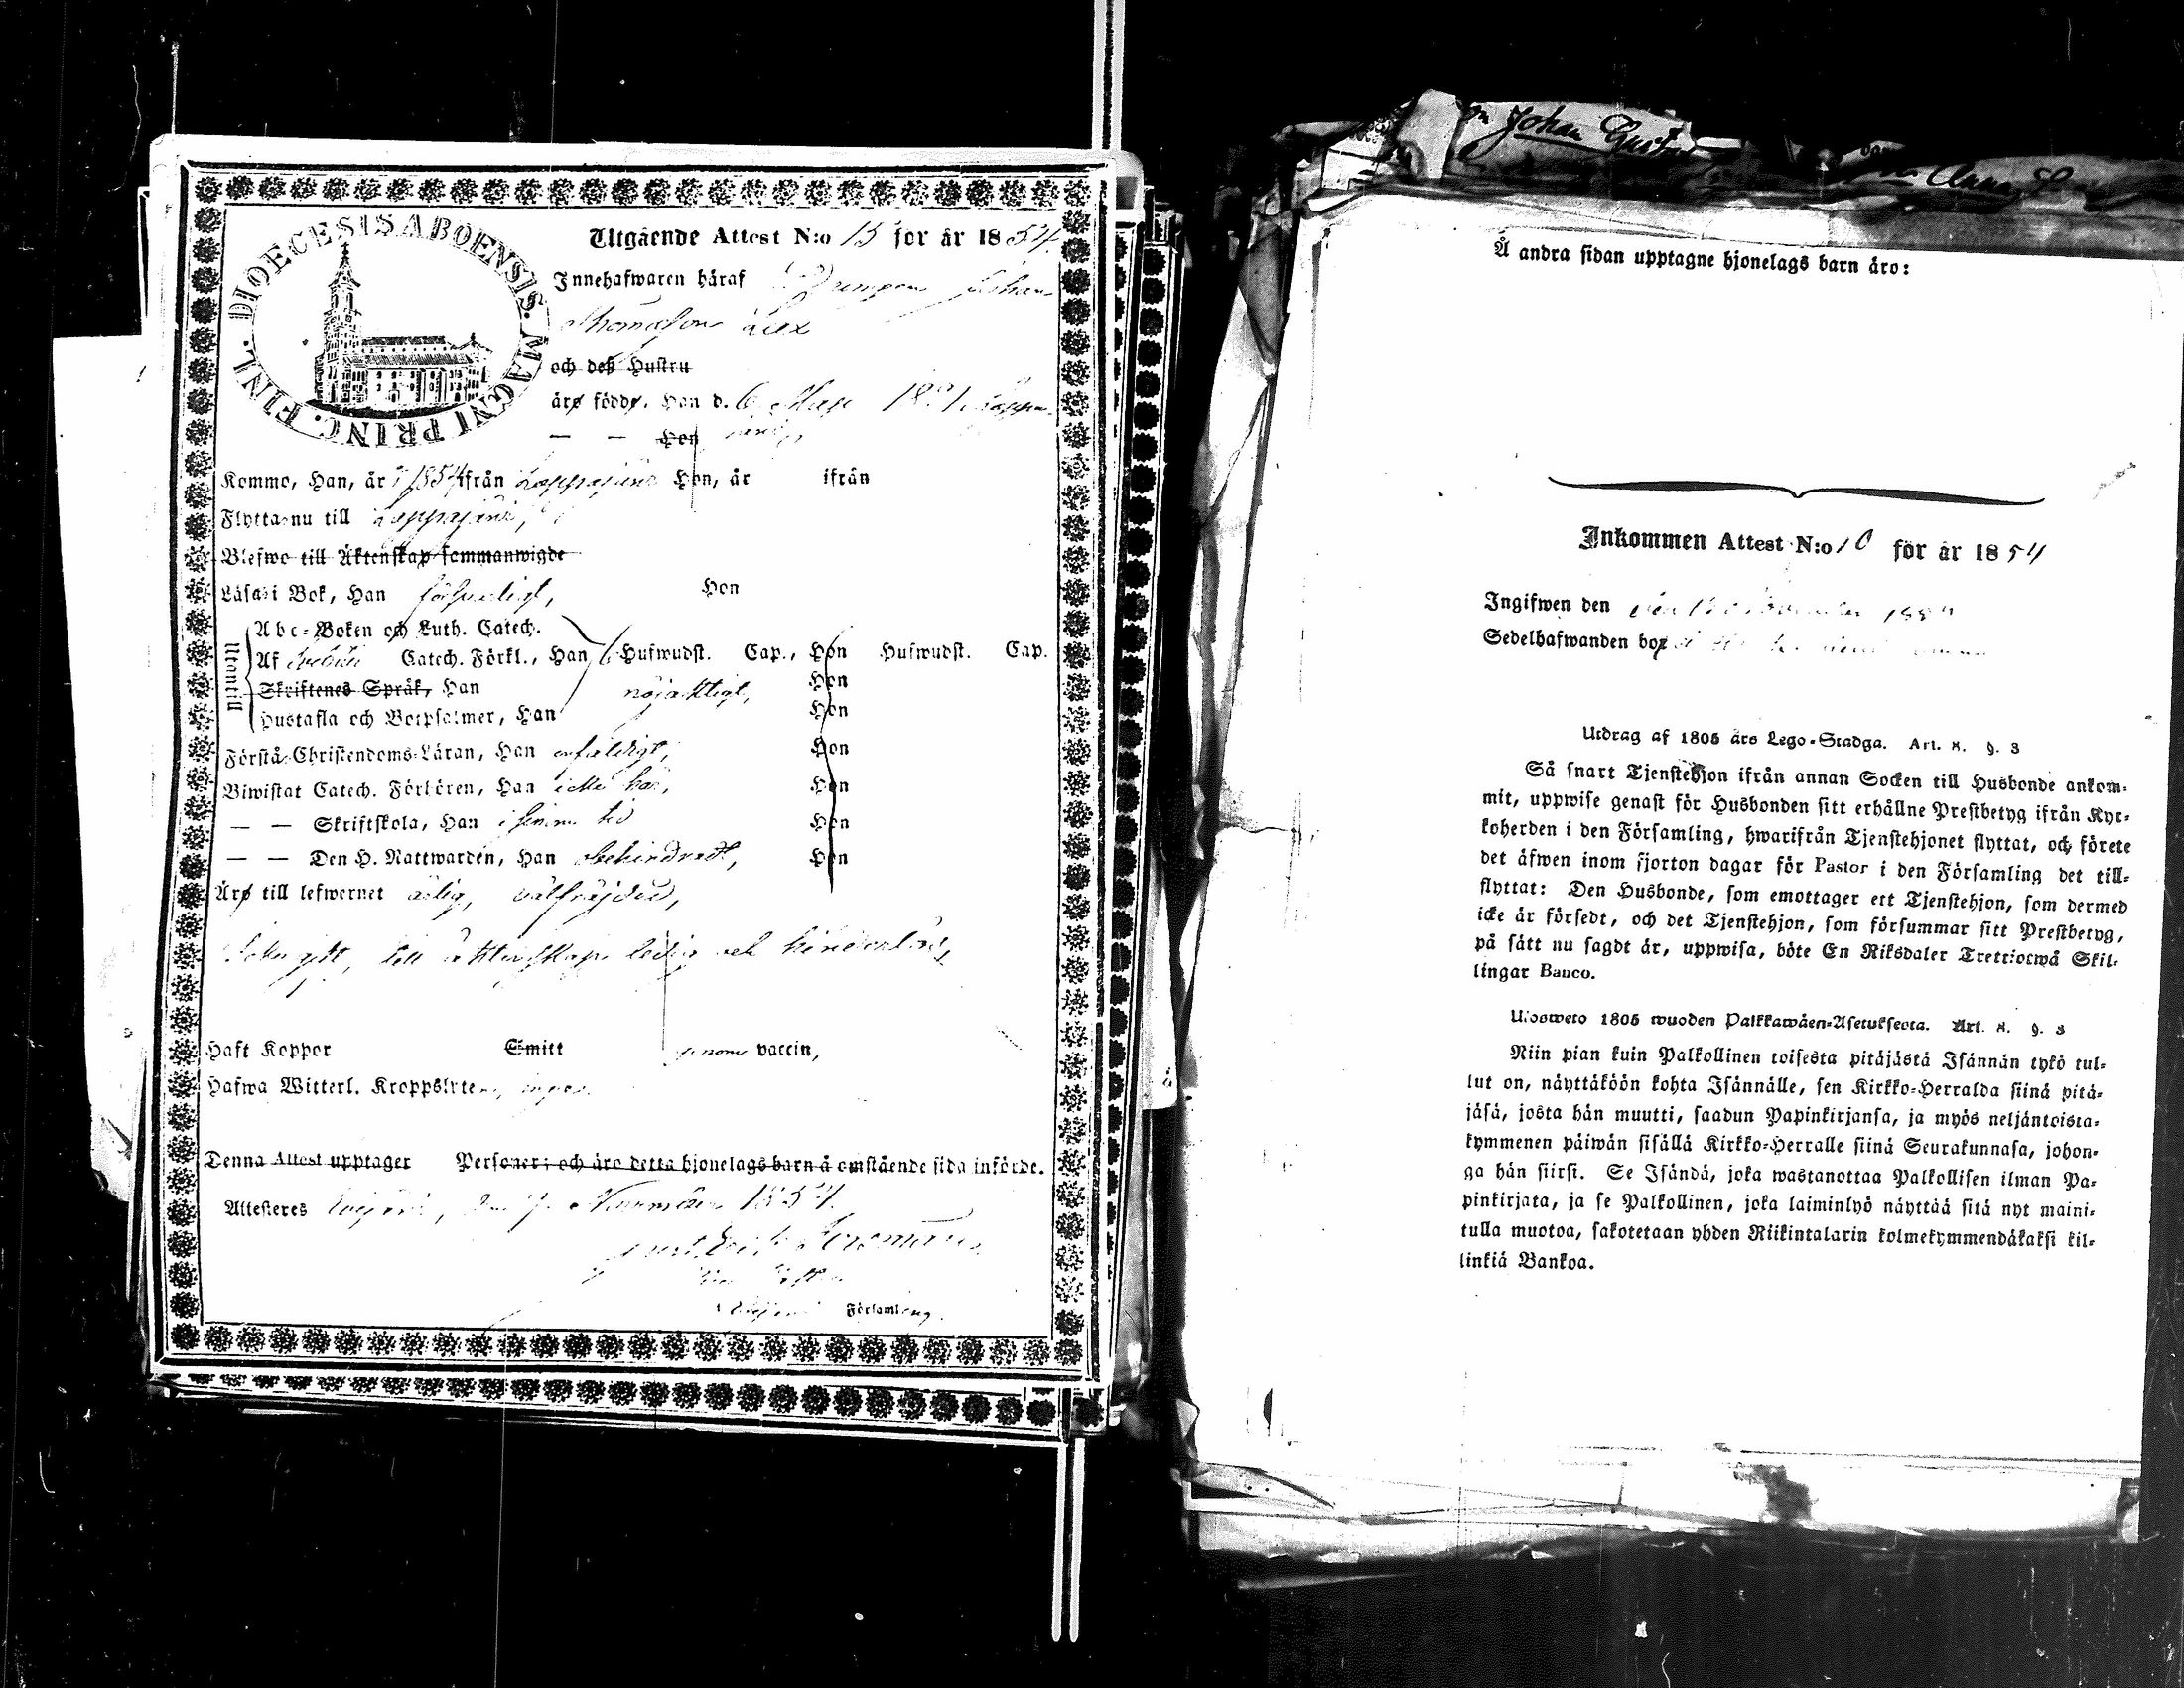 DIOECESIS ABOENSIS. MAGNI PRINC. FINL.
Utgående Attest N:o 15 för år 1854.
Innehafwaren häraf Drängen Johan
Thomasson
och deß Hustru
äro födde. Han d. 6 Maji
— — Hon
Kommo, Han, år 1854 ifrån Lappajärvi Hon, år ifrån
Flytta nu till Lappajärvi,
Blefwo till Äktenskap sammanwigde
Läsa i Bok, Han försvarligt, Hon
Utantill
Abc-Boken och Luth. Catech.
Af Svebilii Catech. Förkl., Han 6 Hufwudst. Cap., Hon Hufwudst. Cap.
Skriftenes Språk, Han nöjaktigt, Hon
Hustafla och Botpsalmer, Han Hon
Förstå Christendoms-Läran, Han enfaldigt, Hon
Biwistat Catech. Förhören, Han icke här, Hon
— — Skriftskola, Han i sinom tid Hon
— — Den H. Nattwarden, Han obehindradt, Hon
Äro till lefwernet ärlig, välfräjdad,
till äktenskap ledig och hinderlös,
Haft Koppor Smitt genom vaccin,
Hafwa Witterl. Kroppslyte
Denna Attest upptager Personer; och äro detta hjonelags barn å omstående sida införde.
Attesteres Evijärvi, den 7 November 1854.
Församling.
Johan Gustaf
Anna
Å andra sidan upptagne hjonelags barn äro:
Inkommen Attest N:o 10 för år 1854
Ingifwen den November 1854
Sedelhafwanden bor
Utdrag af 1805 års Lego-Stadga. Art. 8. §. 3
Så snart Tjenstehjon ifrån annan Socken till Husbonde ankom-
mit, uppwise genast för Husbonden sitt erhållne Prestbetyg ifrån Kyr-
koherden i den Församling, hwarifrån Tjenstehjonet flyttat, och förete
det äfwen inom fjorton dagar för Pastor i den Församling det till-
flyttat: Den Husbonde, som emottager ett Tjenstehjon, som dermed
icke är försedt, och det Tjenstehjon, som försummar sitt Prestbetyg,
på sätt nu sagdt är, uppwisa, böte En Riksdaler Trettiotwå Skil-
lingar Banco.
Ulosweto 1805 wuoden Palkkawäen-Asetuksesta. Art. 8. §. 3
Niin pian kuin Palkollinen toisesta pitäjästä Isännän tykö tul-
lut on, näyttäköön kohta Isännälle, sen Kirkko-Herralda siinä pitä-
jäsä, josta hän muutti, saadun Papinkirjansa, ja myös neljäntoista-
kymmenen päiwän sisällä Kirkko-Herralle siinä Seurakunnasa, johon-
ga hän siirsi. Se Isändä, joka wastanottaa Palkollisen ilman Pa-
pinkirjata, ja se Palkollinen, joka laiminlyö näyttää sitä nyt maini-
tulla muotoa, sakotetaan yhden Riikintalarin kolmekymmendäkaksi kil-
linkiä Bankoa.